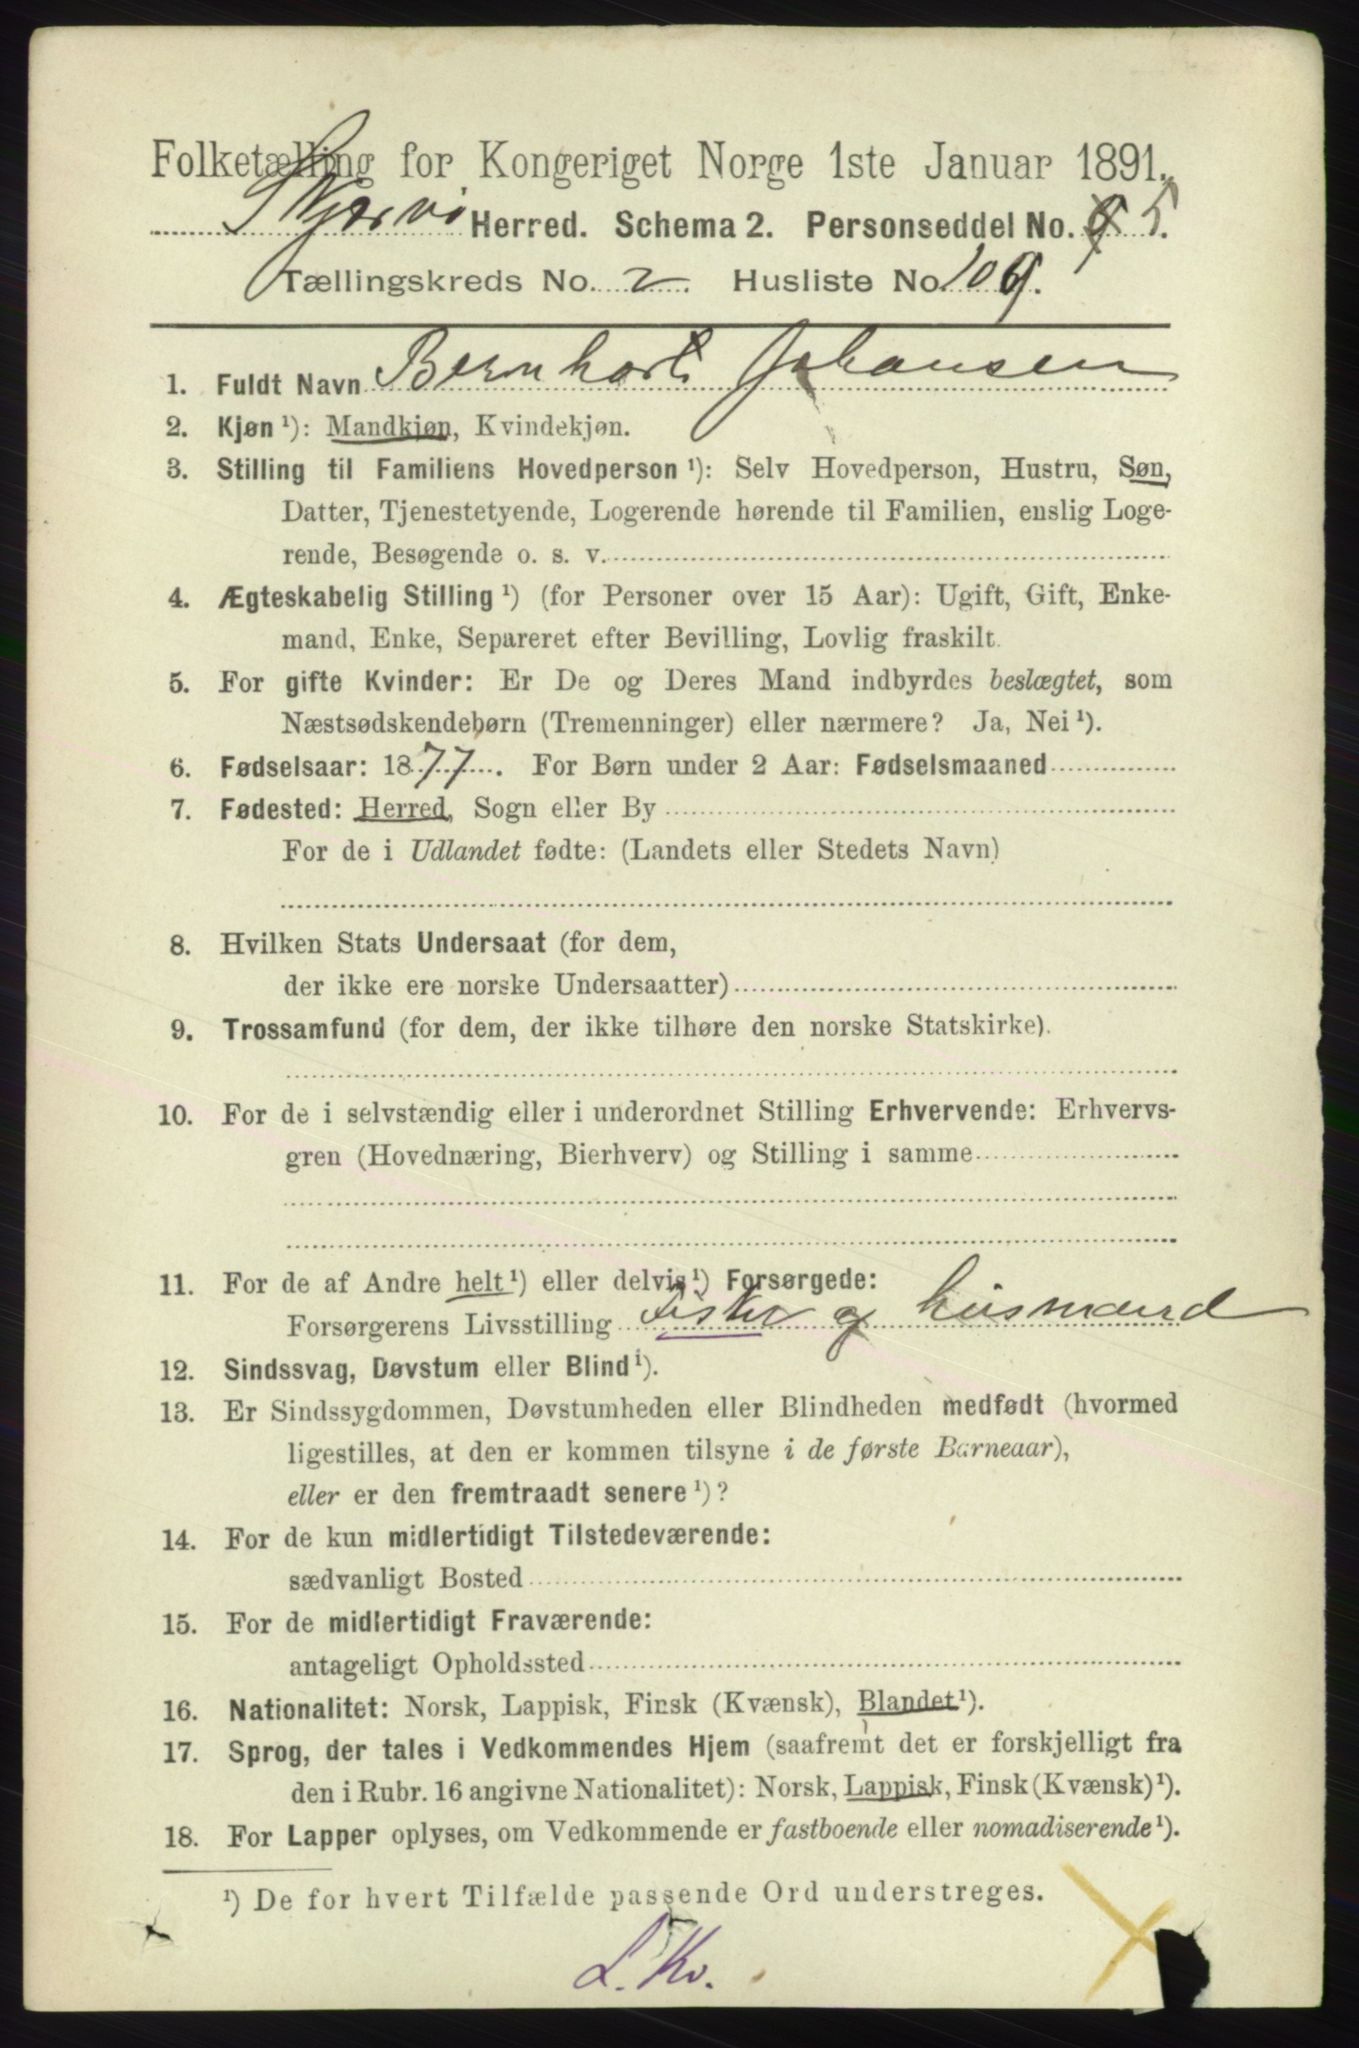 Folketælling for Kongeriget Norge 1ste Januar 1891.
Skjervø Herred. Schema 2. Personseddel No. 5.
Tællingskreds No. 2. Husliste No. 109.
1. Fuldt Navn Bernhart Johansen
2. Kjøn ¹): Mandkjøn, Kvindekjøn.
3. Stilling til Familiens Hovedperson ¹): Selv Hovedperson, Hustru, Søn,
Datter, Tjenestetyende, Logerende hørende til Familien, enslig Loge-
rende, Besøgende o. s. v.
4. Ægteskabelig Stilling ¹) (for Personer over 15 Aar): Ugift, Gift, Enke-
mand, Enke, Separeret efter Bevilling, Lovlig fraskilt.
5. For gifte Kvinder: Er De og Deres Mand indbyrdes beslægtet, som
Næstsødskendebørn (Tremenninger) eller nærmere? Ja, Nei ¹).
6. Fødselsaar: 1877. For Børn under 2 Aar: Fødselsmaaned
7. Fødested: Herred, Sogn eller By
For de i Udlandet fødte: (Landets eller Stedets Navn)
8. Hvilken Stats Undersaat (for dem,
der ikke ere norske Undersaatter)
9. Trossamfund (for dem, der ikke tilhøre den norske Statskirke).
10. For de i selvstændig eller i underordnet Stilling Erhvervende: Erhvervs-
gren (Hovednæring, Bierhverv) og Stilling i samme
11. For de af Andre helt ¹) eller delvis ¹) Forsørgede:
Forsørgerens Livsstilling Fisker og husmand
12. Sindssvag, Døvstum eller Blind ¹).
13. Er Sindssygdommen, Døvstumheden eller Blindheden medfødt (hvormed
ligestilles, at den er kommen tilsyne i de første Barneaar),
eller er den fremtraadt senere ¹)?
14. For de kun midlertidigt Tilstedeværende:
sædvanligt Bosted
15. For de midlertidigt Fraværende:
antageligt Opholdssted
16. Nationalitet: Norsk, Lappisk, Finsk (Kvænsk), Blandet ¹).
17. Sprog, der tales i Vedkommendes Hjem (saafremt det er forskjelligt fra
den i Rubr. 16 angivne Nationalitet): Norsk, Lappisk, Finsk (Kvænsk) ¹).
18. For Lapper oplyses, om Vedkommende er fastboende eller nomadiserende ¹).
¹) De for hvert Tilfælde passende Ord understreges.
L. Kv.